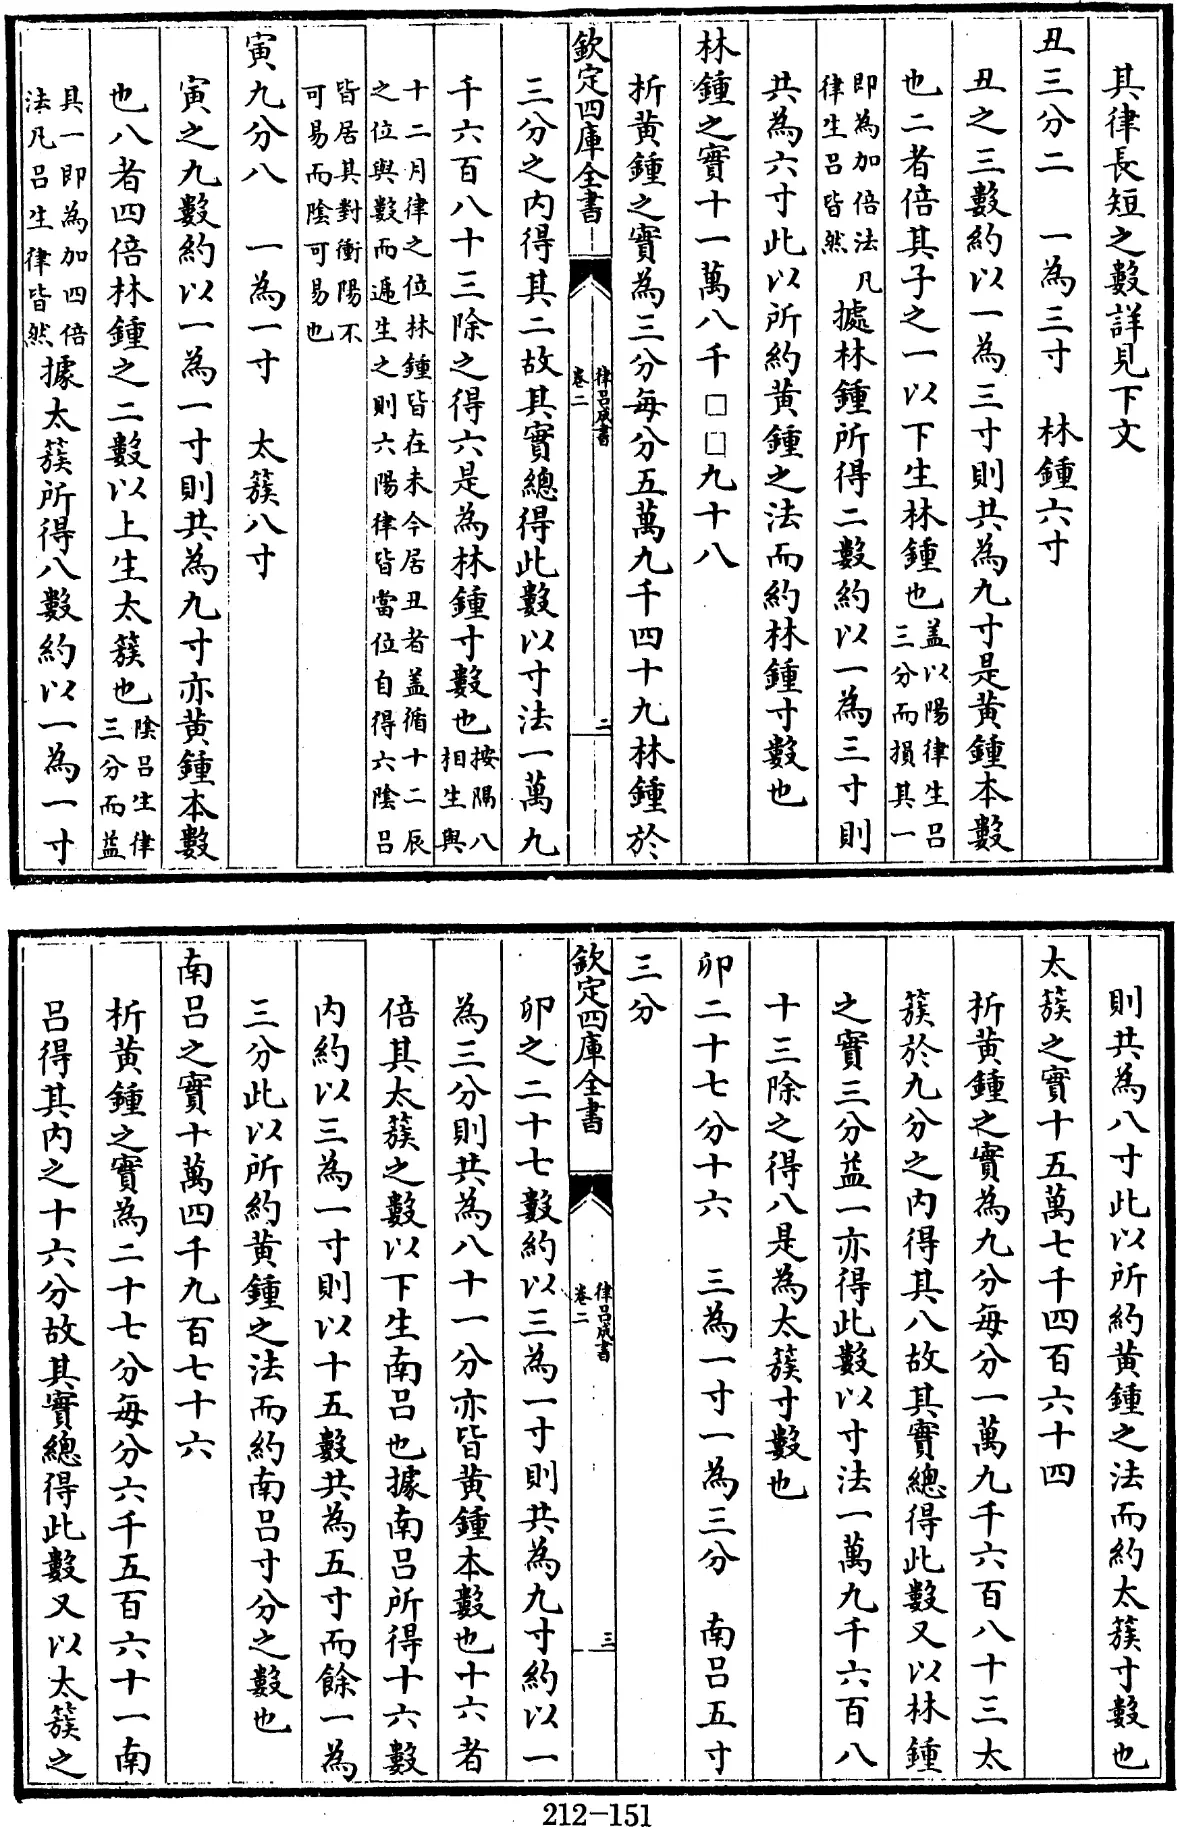 其律長短之數詳見下文
丑三分二　一為三寸　林鍾六寸
丑之三數約以一為三寸則共為九寸是黄鍾本數
也二者倍其子之一以下生林鍾也盖以陽律生吕
三分而損其一
即為加倍法凡
律生吕皆然據林鍾所得二數約以一為三寸則
共為六寸此以所約黄鍾之法而約林鍾寸數也
林鍾之實十一萬八千□□九十八
析黄鍾之實為三分每分五萬九千四十九林鍾於
欽定四庫全書
律吕成書
卷二
二
三分之内得其二故其實總得此數以寸法一萬九
千六百八十三除之得六是為林鍾寸數也按隔八
相生與
十二月律之位林鍾皆在未今居丑者盖循十二辰
之位與數而逓生之則六陽律皆當位自得六陰吕
皆居其對衝陽不
可易而陰可易也
寅九分八　一為一寸　太簇八寸
寅之九數約以一為一寸則共為九寸亦黄鍾本數
也八者四倍林鍾之二數以上生太簇也陰吕生律
三分而益
其一即為加四倍
法凡吕生律皆然據太簇所得八數約以一為一寸
則共為八寸此以所約黄鍾之法而約太簇寸數也
太簇之實十五萬七千四百六十四
析黄鍾之實為九分每分一萬九千六百八十三太
簇於九分之内得其八故其實總得此數又以林鍾
之實三分益一亦得此數以寸法一萬九千六百八
十三除之得八是為太簇寸數也
卯二十七分十六　三為一寸一為三分　南吕五寸
三分
欽定四庫全書
律吕成書
卷二
三
卯之二十七數約以三為一寸則共為九寸約以一
為三分則共為八十一分亦皆黄鍾本數也十六者
倍其太簇之數以下生南吕也據南吕所得十六數
内約以三為一寸則以十五數共為五寸而餘一為
三分此以所約黄鍾之法而約南吕寸分之數也
南吕之實十萬四千九百七十六
析黄鍾之實為二十七分每分六千五百六十一南
吕得其内之十六分故其實總得此數又以太簇之
212-151